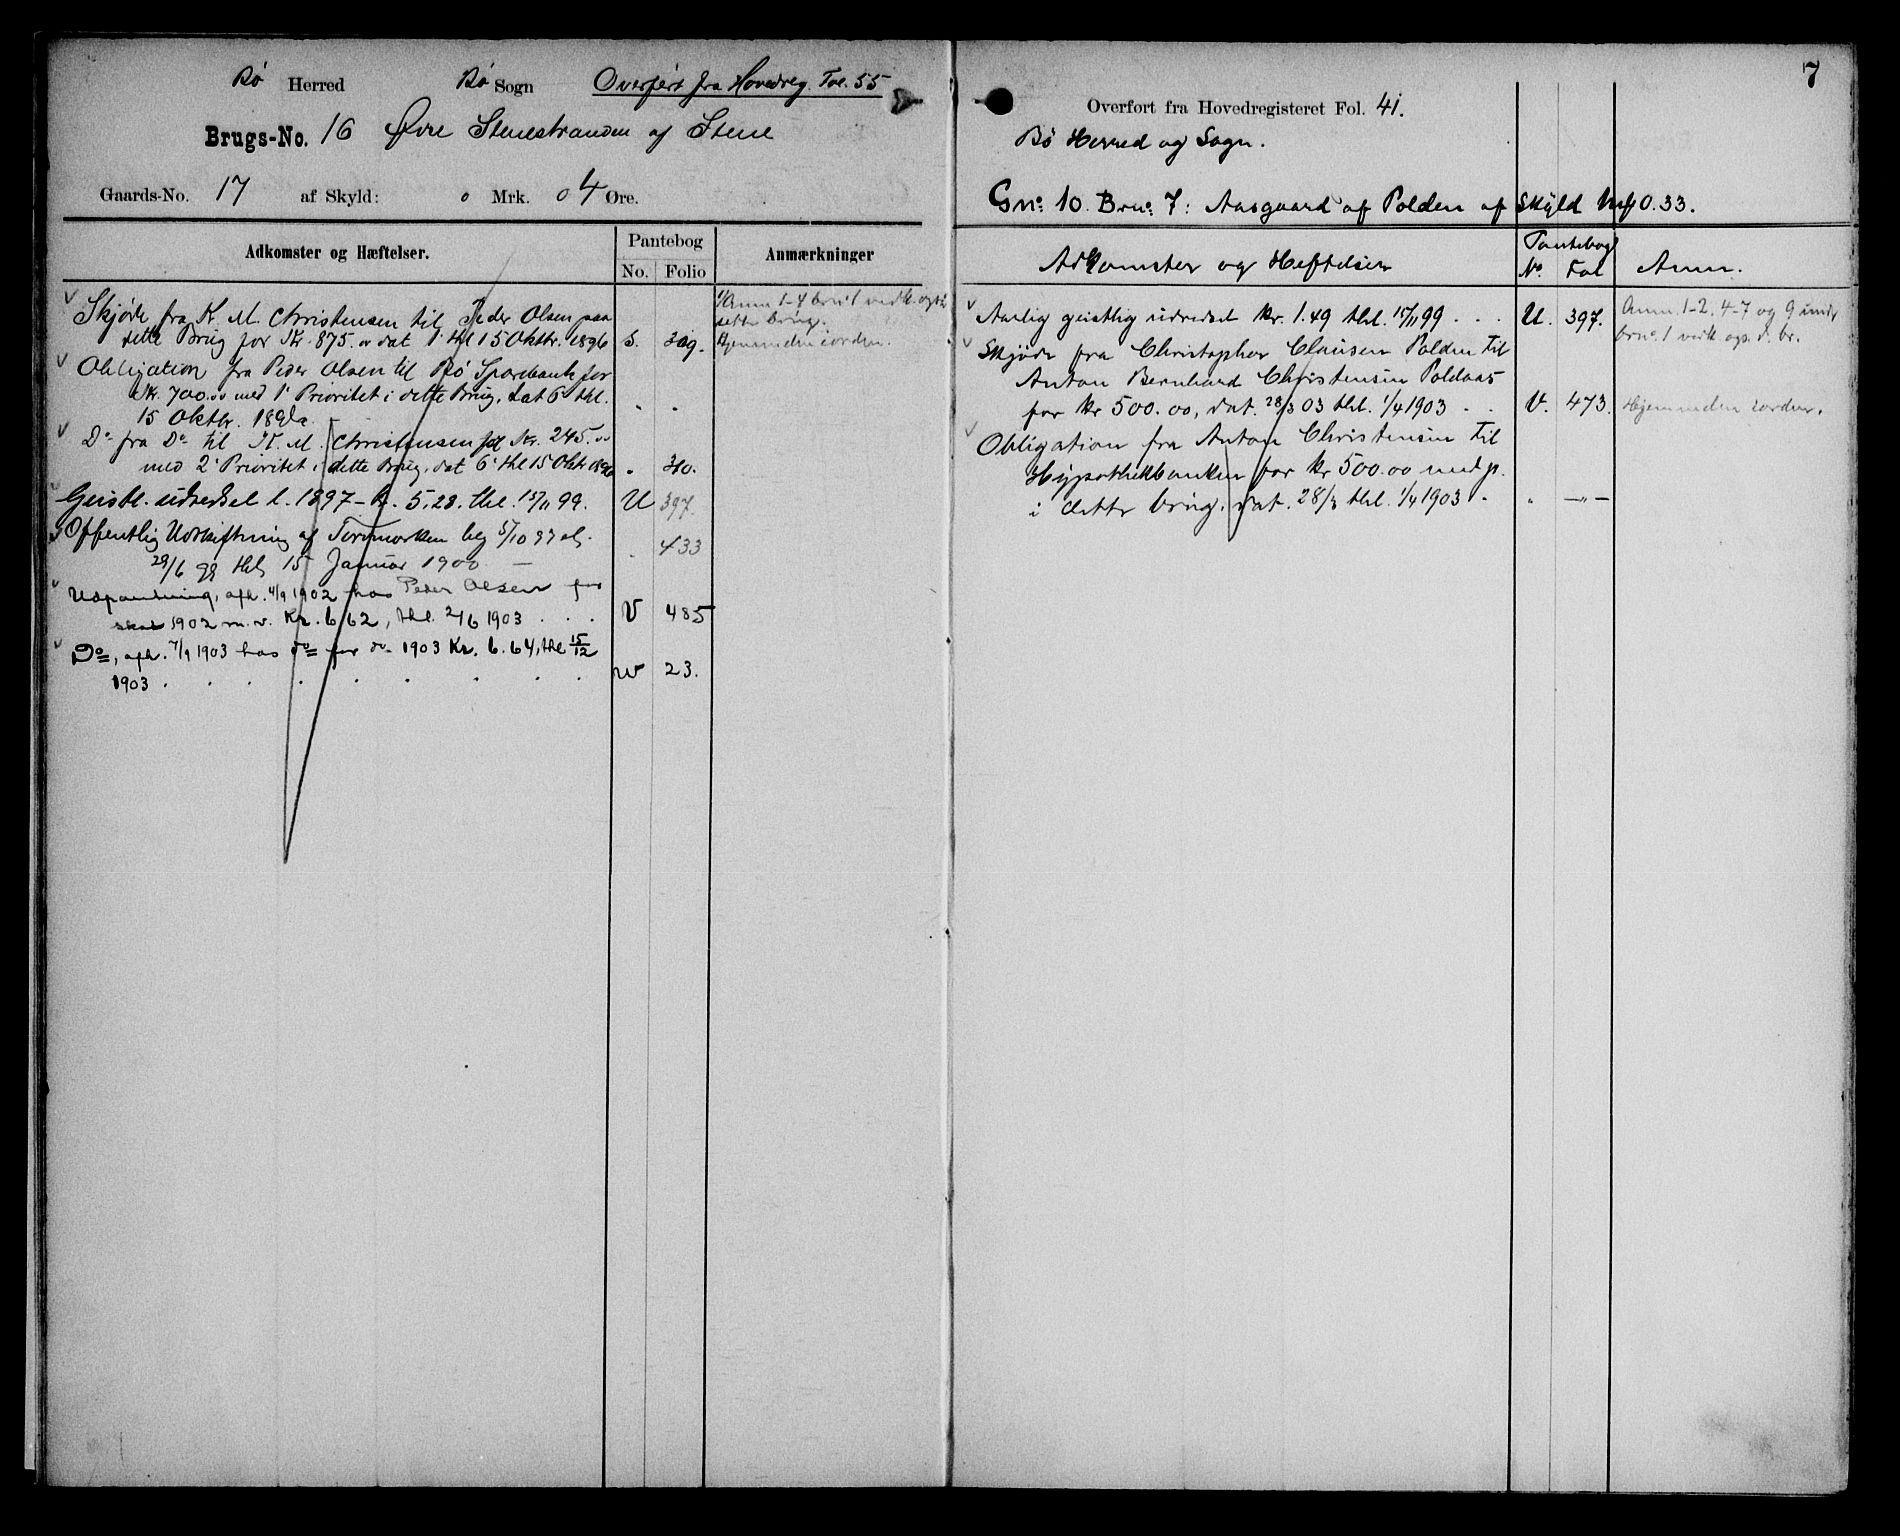 Bø Herred Bø Sogn Overført fra Hovedreg. Fol. 55
Brugs-No. 16 Øvre Stenestranden af Stene
Gaards-No. 17 af Skyld: 0 Mrk. 04 Øre.
Adkomster og Hæftelser. Pantebog Anmærkninger
No. Folio
Skjøde fra K. M. Christensen til Peder Olsen paa
dette Brug for Kr. 875.00 dat 1' thl 15 Oktbr. 1896 S. 309.
Anm 1-4 brno 1 vedk. ogsaa
dette brug.
Hjemmelen iorden.
Obligation fra Peder Olsen til Bø Sparebank for
Kr. 700.00 med 1' Prioritet i dette Brug, dat 6' thl. " "
15 Oktbr. 1896.
Do fra Do til K. M. Christensen for Kr. 245.00
med 2' Prioritet i dette Brug, dat 6' thl 15 Oktb 1896 " 310.
Geistl. udredsel l. 1897 - kr. 5.28. thl. 15/11 99. U 397.
Offentlig Udskiftning af Torvmarken beg 5/10 97 afs.
29/6 99 thl. 15 Januar 1900 — " 433
Udpantning, afh. 4/9 1902 hos Peder Olsen for
skat 1902 m.v. Kr. 6.62, thl. 2/6 1903 . . . V 485
Do, afh. 7/9 1903 hos do for do 1903 Kr. 6.64, thl 15/12
1903 . . . . . . . . . W 23.
7
Overført fra Hovedregisteret Fol. 41.
Bø Herred og Sogn.
Gno. 10. Brno. 7: Aasgaard af Polden af Skyld Mk 0.33.
Adkomster og Heftelser Pantebog
No. Fol Anm.
Aarlig geistlig udredsel kr. 1.49 thl. 15/11 99 . . . U. 397. Anm. 1-2. 4-7 og 9 under
brno. 1 vedk. ogs. d. br.
Skjøde fra Christopher Clausen Polden til
Anton Bernhard Christensen Poldaas
for kr 500.00, dat. 28/3 03 thl. 1/4 1903 . . V. 473. Hjemmelen iorden.
Obligation fra Anton Christensen til
Hypothekbanken for kr 500.00 med p.
i dette brug, dat. 28/3 thl. 1/4 1903 . " — " —